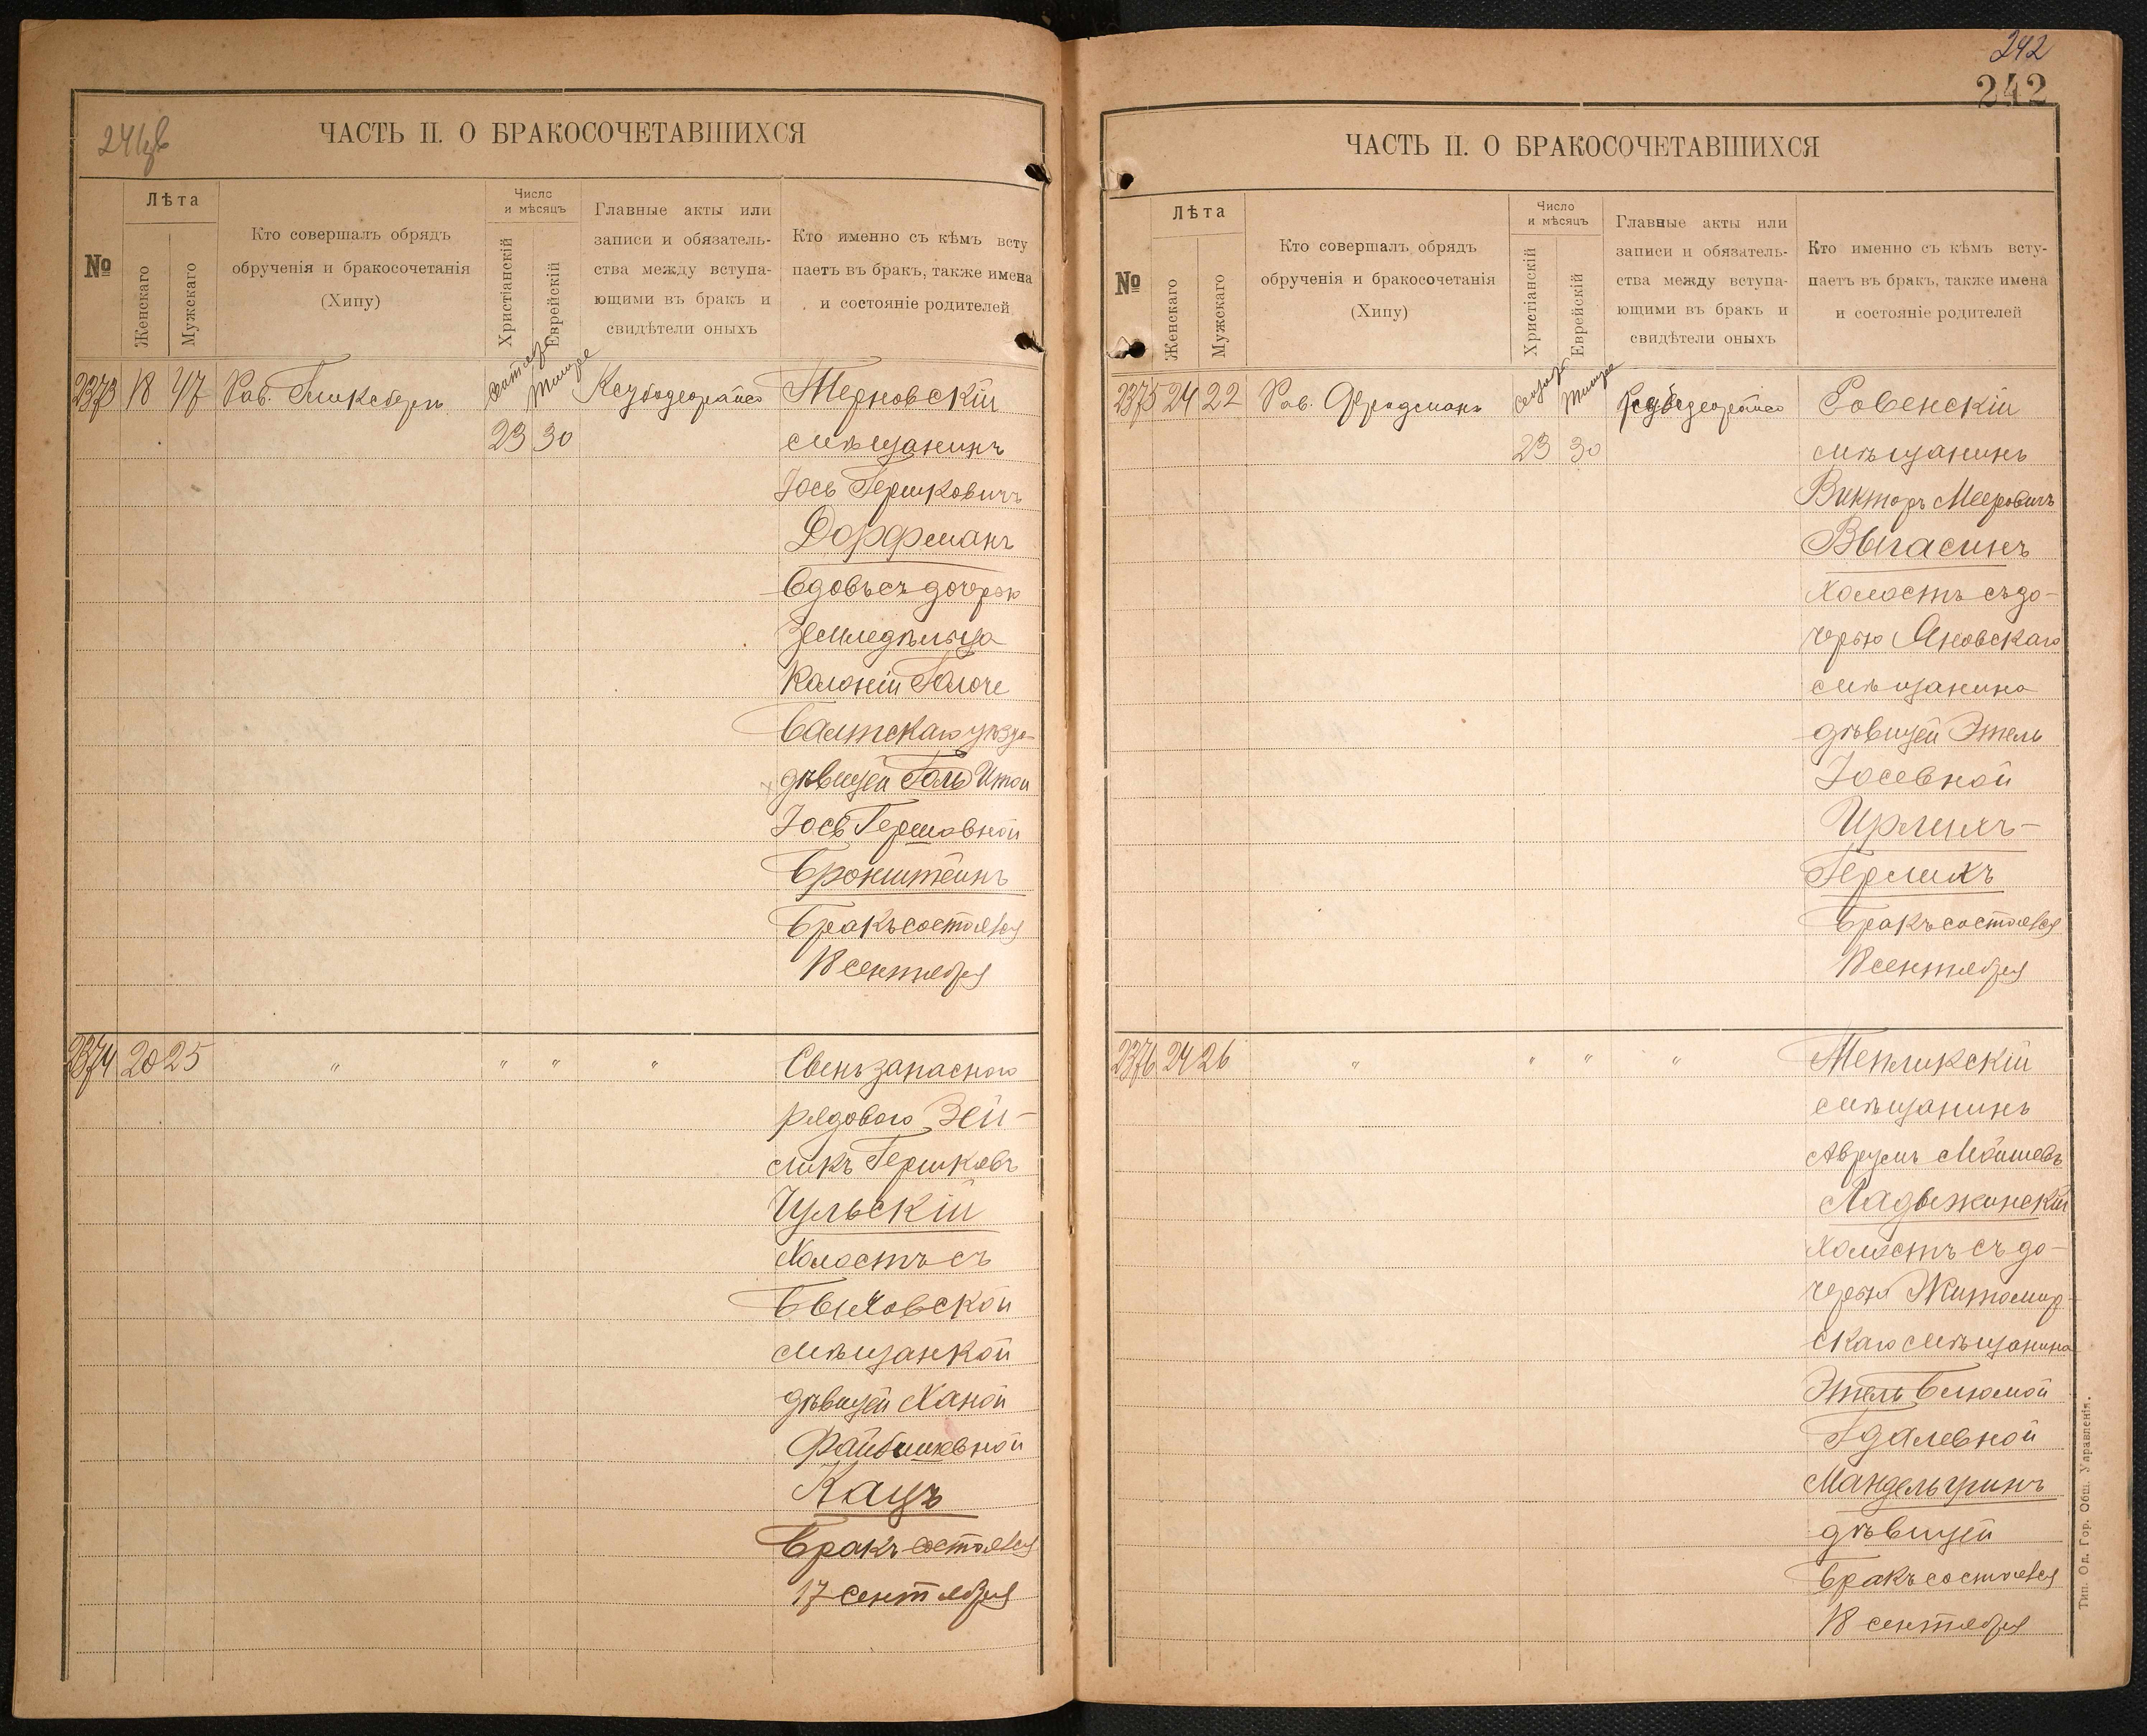 241об
ЧАСТЬ II. О БРАКОСОЧЕТАВШИХСЯ
№
Лѣта
Женскаго
Мужскаго
Кто совершалъ обрядъ
обрученія и бракосочетанія
(Хипу)
Число
и мѣсяцъ
Христіанскій
Еврейскій
Главные акты или
записи и обязатель-
ства между вступа-
ющими въ бракъ и
свидѣтели оныхъ
Кто именно съ кѣмъ всту
паетъ въ бракъ, также имена
и состояніе родителей
2373 18 47 Рав. 23 30
Терновскій
мѣщанинъ
Іось Гершковичъ
Дорфманъ
вдовъ съ дочерью
земледѣльца
Колоніи
Балтскаго уѣзда
дѣвицей Итой
Іось Гершовной
Бронштейнъ
Бракъ состоялся
18 сентября
2374 20 25 " " " "
Сынъ запасного
рядового Зей-
Гершковъ
Чульскій
Холостъ съ
Быховской
мѣщанкой
дѣвицей Ханой
Файбишевной
Кацъ
Бракъ состоялся
17 сентября
242
242
ЧАСТЬ II. О БРАКОСОЧЕТАВШИХСЯ
№
Лѣта
Женскаго
Мужскаго
Кто совершалъ обрядъ
обрученія и бракосочетанія
(Хипу)
Число
и мѣсяцъ
Христіанскій
Еврейскій
Главные акты или
записи и обязатель-
ства между вступа-
ющими въ бракъ и
свидѣтели оныхъ
Кто именно съ кѣмъ всту-
паетъ въ бракъ, также имена
и состояніе родителей
2375 24 22 Рав. Фридманъ 23 30
Ровенскій
мѣщанинъ
Викторъ Мееровичъ
Выгасинъ
Холостъ съ до-
черью Яновскаго
мѣщанина
дѣвицей Этель
Іосевной
Ирлихъ-
Герликъ
Бракъ состоялся
18 сентября
2376 24 26 " " " "
Тепликскій
мѣщанинъ
Аврумъ Мойшевъ
Ладыжинскій
Холостъ съ до-
черью Житомир-
скаго мѣщанина
Этель Блюмой
Гдалевной
Мандельгринъ
дѣвицей
Бракъ состоялся
18 сентября
Тип. Од. Гор. Общ. Управленія.